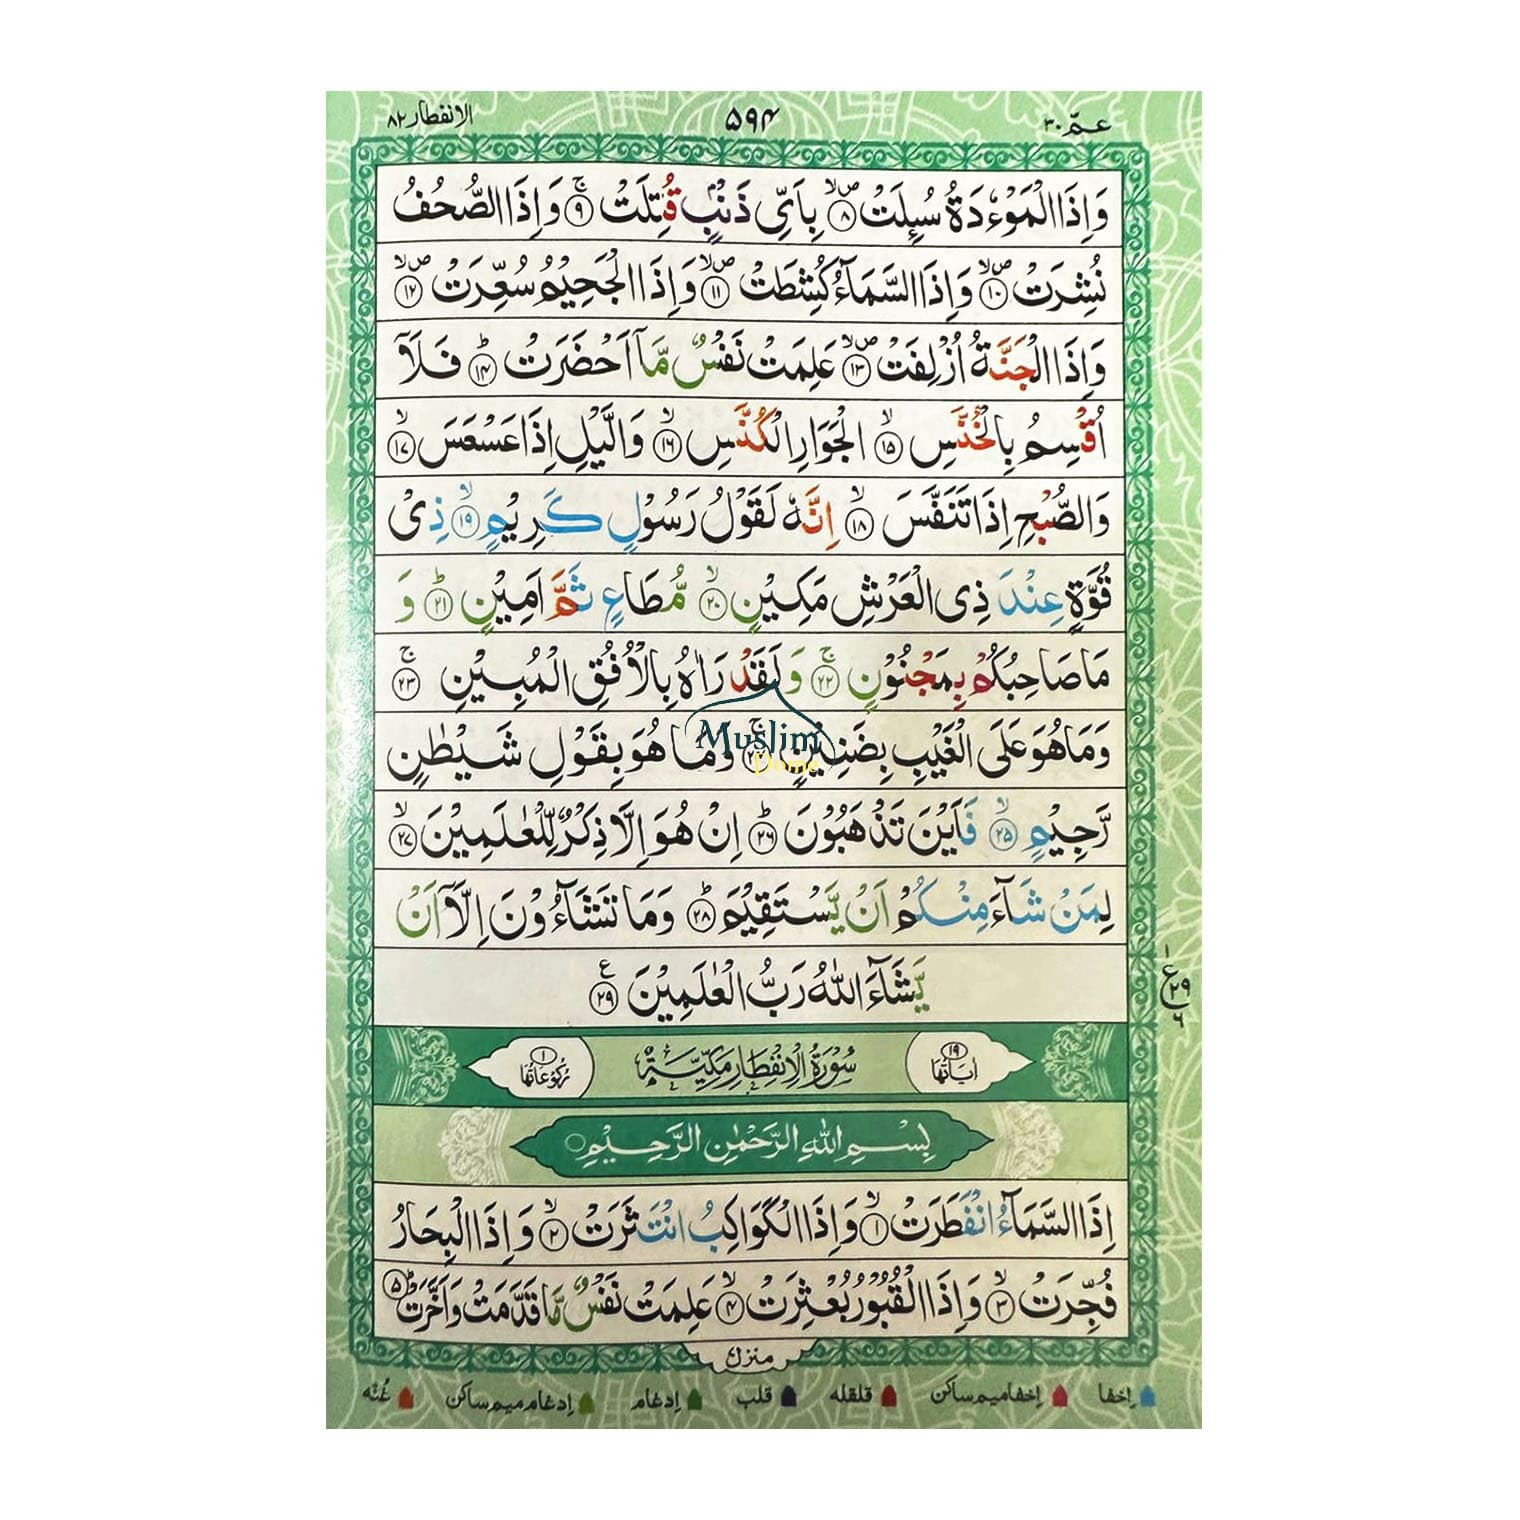 الانفطار ۸۲
۵۹۴
عمّ ۳۰
وَاِذَا الْمَوْءٗدَةُ سُئِلَتْ ۙ۸ بِاَیِّ ذَنْۢبٍ قُتِلَتْ ۚ۹ وَاِذَا الصُّحُفُ
نُشِرَتْ ۙ۱۰ وَاِذَا السَّمَآءُ كُشِطَتْ ۙ۱۱ وَاِذَا الْجَحِیْمُ سُعِّرَتْ ۙ۱۲
وَاِذَا الْجَنَّةُ اُزْلِفَتْ ۙ۱۳ عَلِمَتْ نَفْسٌ مَّاۤ اَحْضَرَتْ ؕ۱۴ فَلَاۤ
اُقْسِمُ بِالْخُنَّسِ ۙ۱۵ الْجَوَارِ الْكُنَّسِ ۙ۱۶ وَالَّیْلِ اِذَا عَسْعَسَ ۙ۱۷
وَالصُّبْحِ اِذَا تَنَفَّسَ ۙ۱۸ اِنَّهٗ لَقَوْلُ رَسُوْلٍ كَرِیْمٍ ۙ۱۹ ذِیْ
قُوَّةٍ عِنْدَ ذِی الْعَرْشِ مَكِیْنٍ ۙ۲۰ مُّطَاعٍ ثَمَّ اَمِیْنٍ ؕ۲۱ وَ
مَا صَاحِبُكُمْ بِمَجْنُوْنٍ ۚ۲۲ وَلَقَدْ رَاٰهُ بِالْاُفُقِ الْمُبِیْنِ ۚ۲۳
وَمَا هُوَ عَلَی الْغَیْبِ بِضَنِیْنٍ ۚ۲۴ وَمَا هُوَ بِقَوْلِ شَیْطٰنٍ
رَّجِیْمٍ ۙ۲۵ فَاَیْنَ تَذْهَبُوْنَ ؕ۲۶ اِنْ هُوَ اِلَّا ذِكْرٌ لِّلْعٰلَمِیْنَ ۙ۲۷
لِمَنْ شَآءَ مِنْكُمْ اَنْ یَّسْتَقِیْمَ ؕ۲۸ وَمَا تَشَآءُوْنَ اِلَّاۤ اَنْ
یَّشَآءَ اللّٰهُ رَبُّ الْعٰلَمِیْنَ ۲۹ع
۱ ع۲۹ ۶
۱۹ اٰیَاتُهَا سُوْرَةُ الْاِنْفِطَارِ مَكِّیَّةٌ ۱ رُكُوْعَاتُهَا
بِسْمِ اللّٰهِ الرَّحْمٰنِ الرَّحِیْمِ
اِذَا السَّمَآءُ انْفَطَرَتْ ۙ۱ وَاِذَا الْكَوَاكِبُ انْتَثَرَتْ ۙ۲ وَاِذَا الْبِحَارُ
فُجِّرَتْ ۙ۳ وَاِذَا الْقُبُوْرُ بُعْثِرَتْ ۙ۴ عَلِمَتْ نَفْسٌ مَّا قَدَّمَتْ وَاَخَّرَتْ ؕ۵
منزل
اِخفا اِخفا میم ساکن قلقله قلب اِدغام اِدغام میم ساکن غُنّه
Muslim
Dome